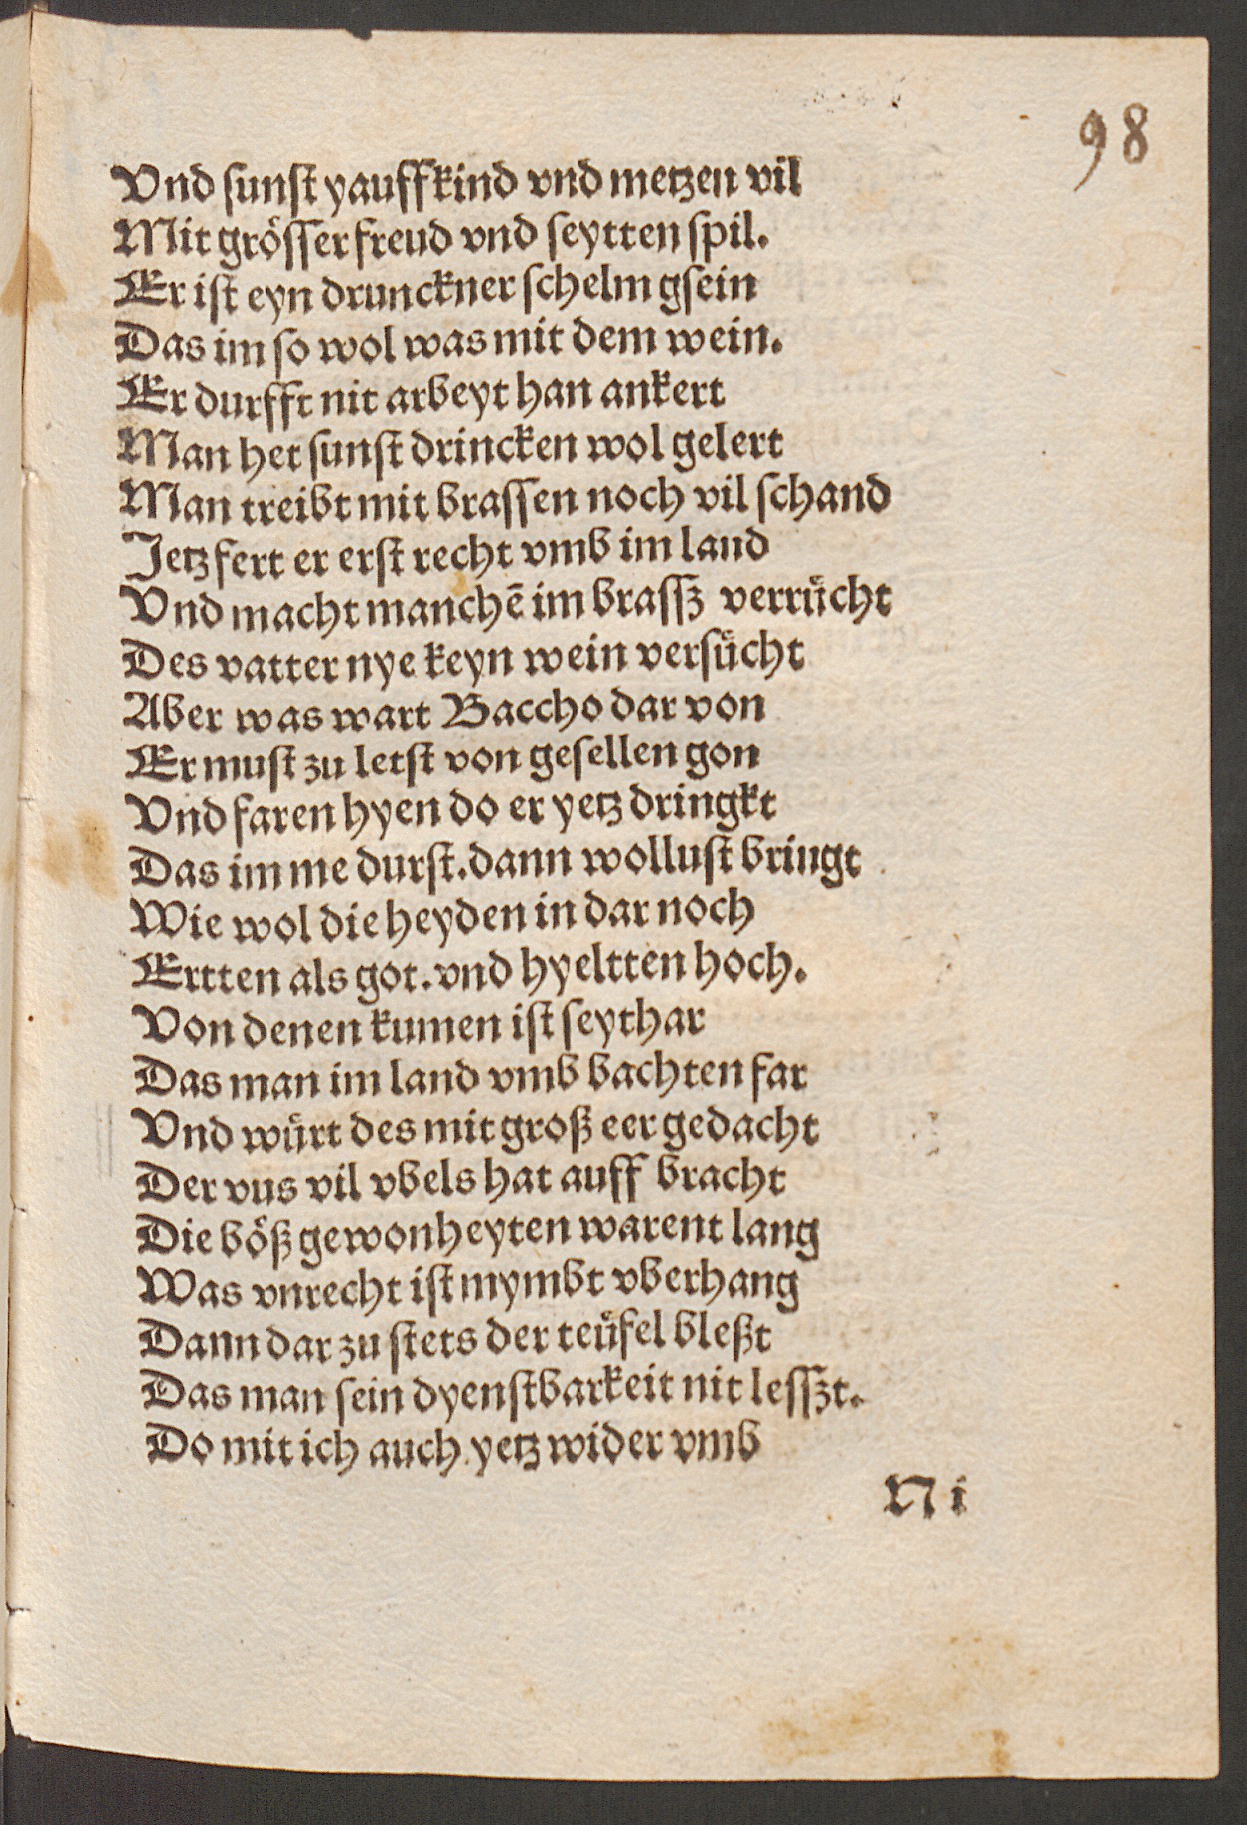 98
Vnd ſunſt yauffkind vnd metzen vil
Mit gröſſer freud vnd ſeytten ſpil.
Er iſt eyn drunckner ſchelm gſein
Das im ſo wol was mit dem wein.
Er durfft nit arbeyt han ankert
Man het ſunſt drincken wol gelert
Man treibt mit braſſen noch vil ſchand
Jetz fert er erſt recht vmb im land
Vnd macht manchē im braſſz verruͤcht
Des vatter nye keyn wein verſuͤcht
Aber was wart Baccho dar von
Er muſt zu letſt von geſellen gon
Vnd faren hyen do er yetz dringkt
Das im me durſt. dann wolluſt bringt
Wie wol die heyden in dar noch
Ertten als got. vnd hyeltten hoch.
Von denen kumen iſt ſeythar
Das man im land vmb bachten far
Vnd wuͤrt des mit groß eer gedacht
Der vns vil vbels hat auff bracht
Die böß gewonheyten warent lang
Was vnrecht iſt mymbt vberhang
Dann dar zu ſtets der teuͤfel bleßt
Das man ſein dyenſtbarkeit nit leſſzt.
Do mit ich auch yetz wider vmb
N i